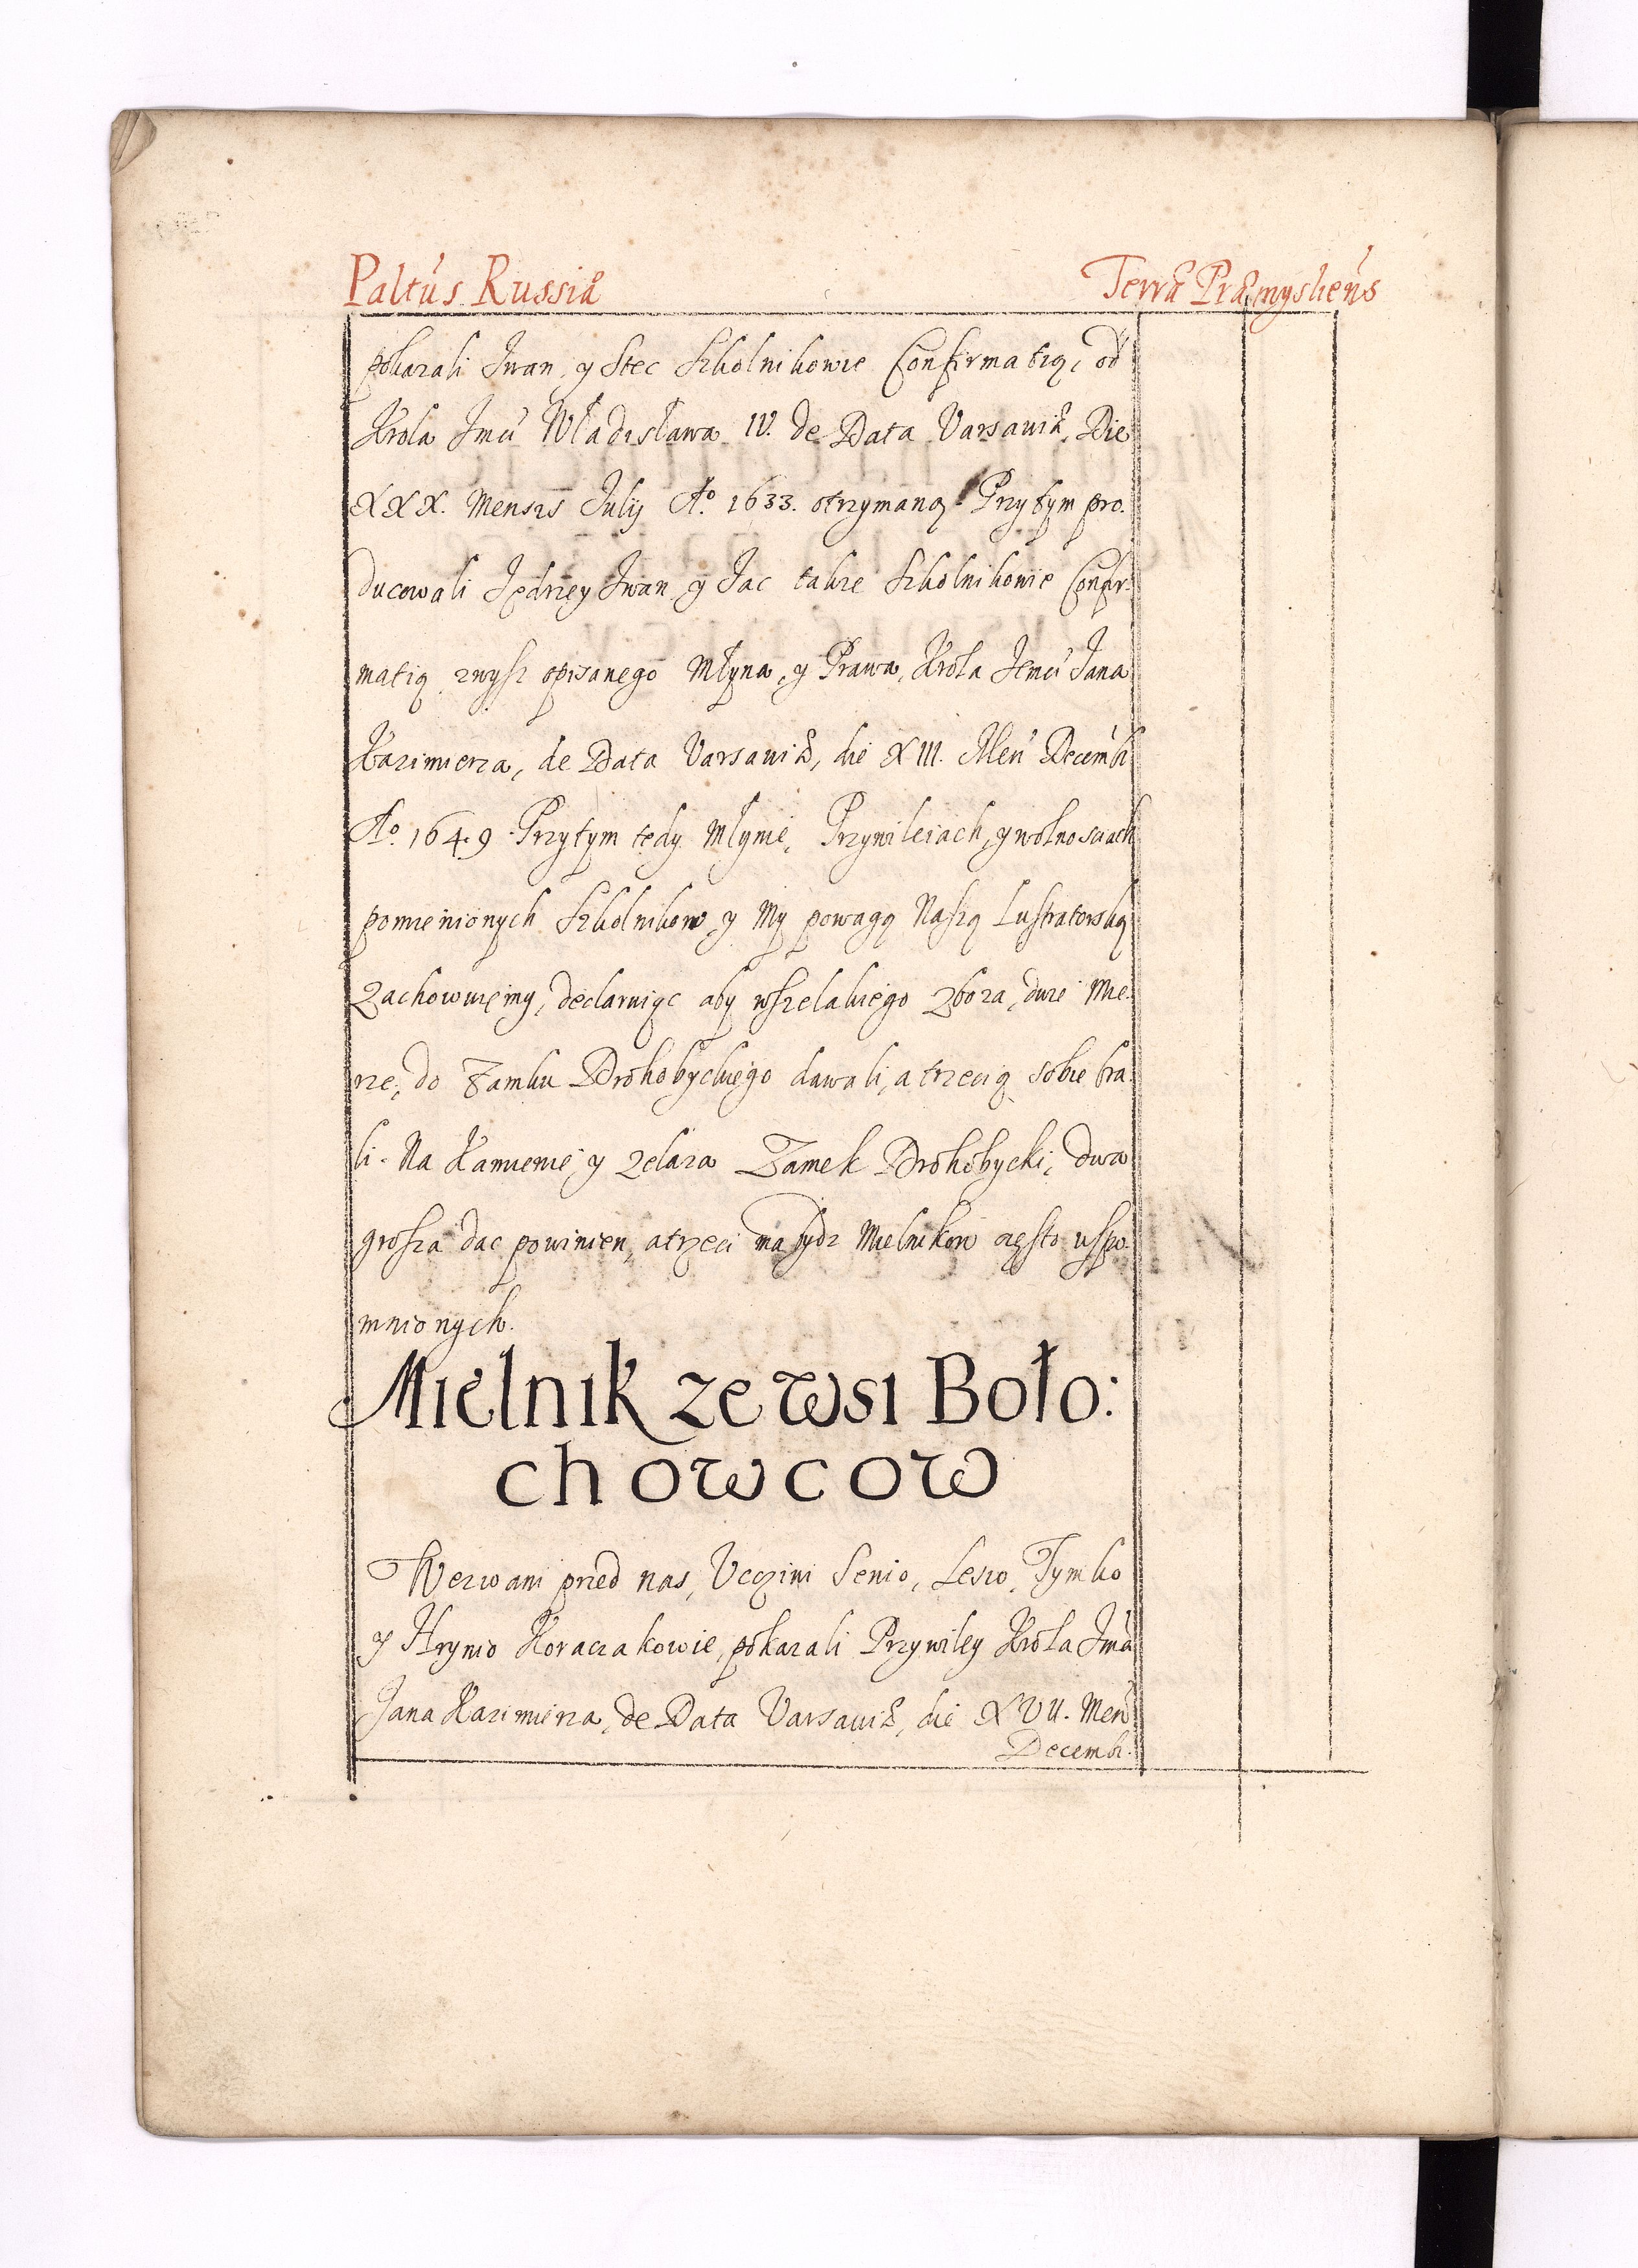 Paltús Russiæ Terræ Præmysliens
pokazali Iwan, y Stec Szkolnikowie Confirmatią, od
Krola Jmći Władisława IV. de Data Varsaviæ, Die
XXX. Mensis Julij Aº. 1633. otrzymaną. Przytym pro.
ducowali Jędrzey Iwan, y Jac także Szkolnikowie Confir-
matią zwysz opisanego Młyna, y Prawa, Krola Jemći Jana
Kazimierza, de Data Varsaviæ, die XIII. Men Decemb
Aº. 1649. Przytym tedy Młynie, Przywileiach, y wolnosciach
pomienionych Szkolnikow, y My powagą Naszą Lustratorską
Zachowuięmy, declaruiąc aby wszelakiego zboza, dwie Mie-
rze, do Zamku Drohobyckiego dawali, a trzecią sobie bra-
li. Na Kamienie y zelaza Zamek Drohobycki, dwa
grosza dac powinien, a trzeci Mielnikow często uspo-
mnionych.
Mielnik ze wsi Boło:
chowcow
Wezwani przed nas, Ucziwi Senio, Lesio, Tymko
y Hrynio Koraczakowie, pokazali Przywiley Krola Jmći
Jana Kazimierza, de Data Varsaviæ, die XVII. Men
Decemb.